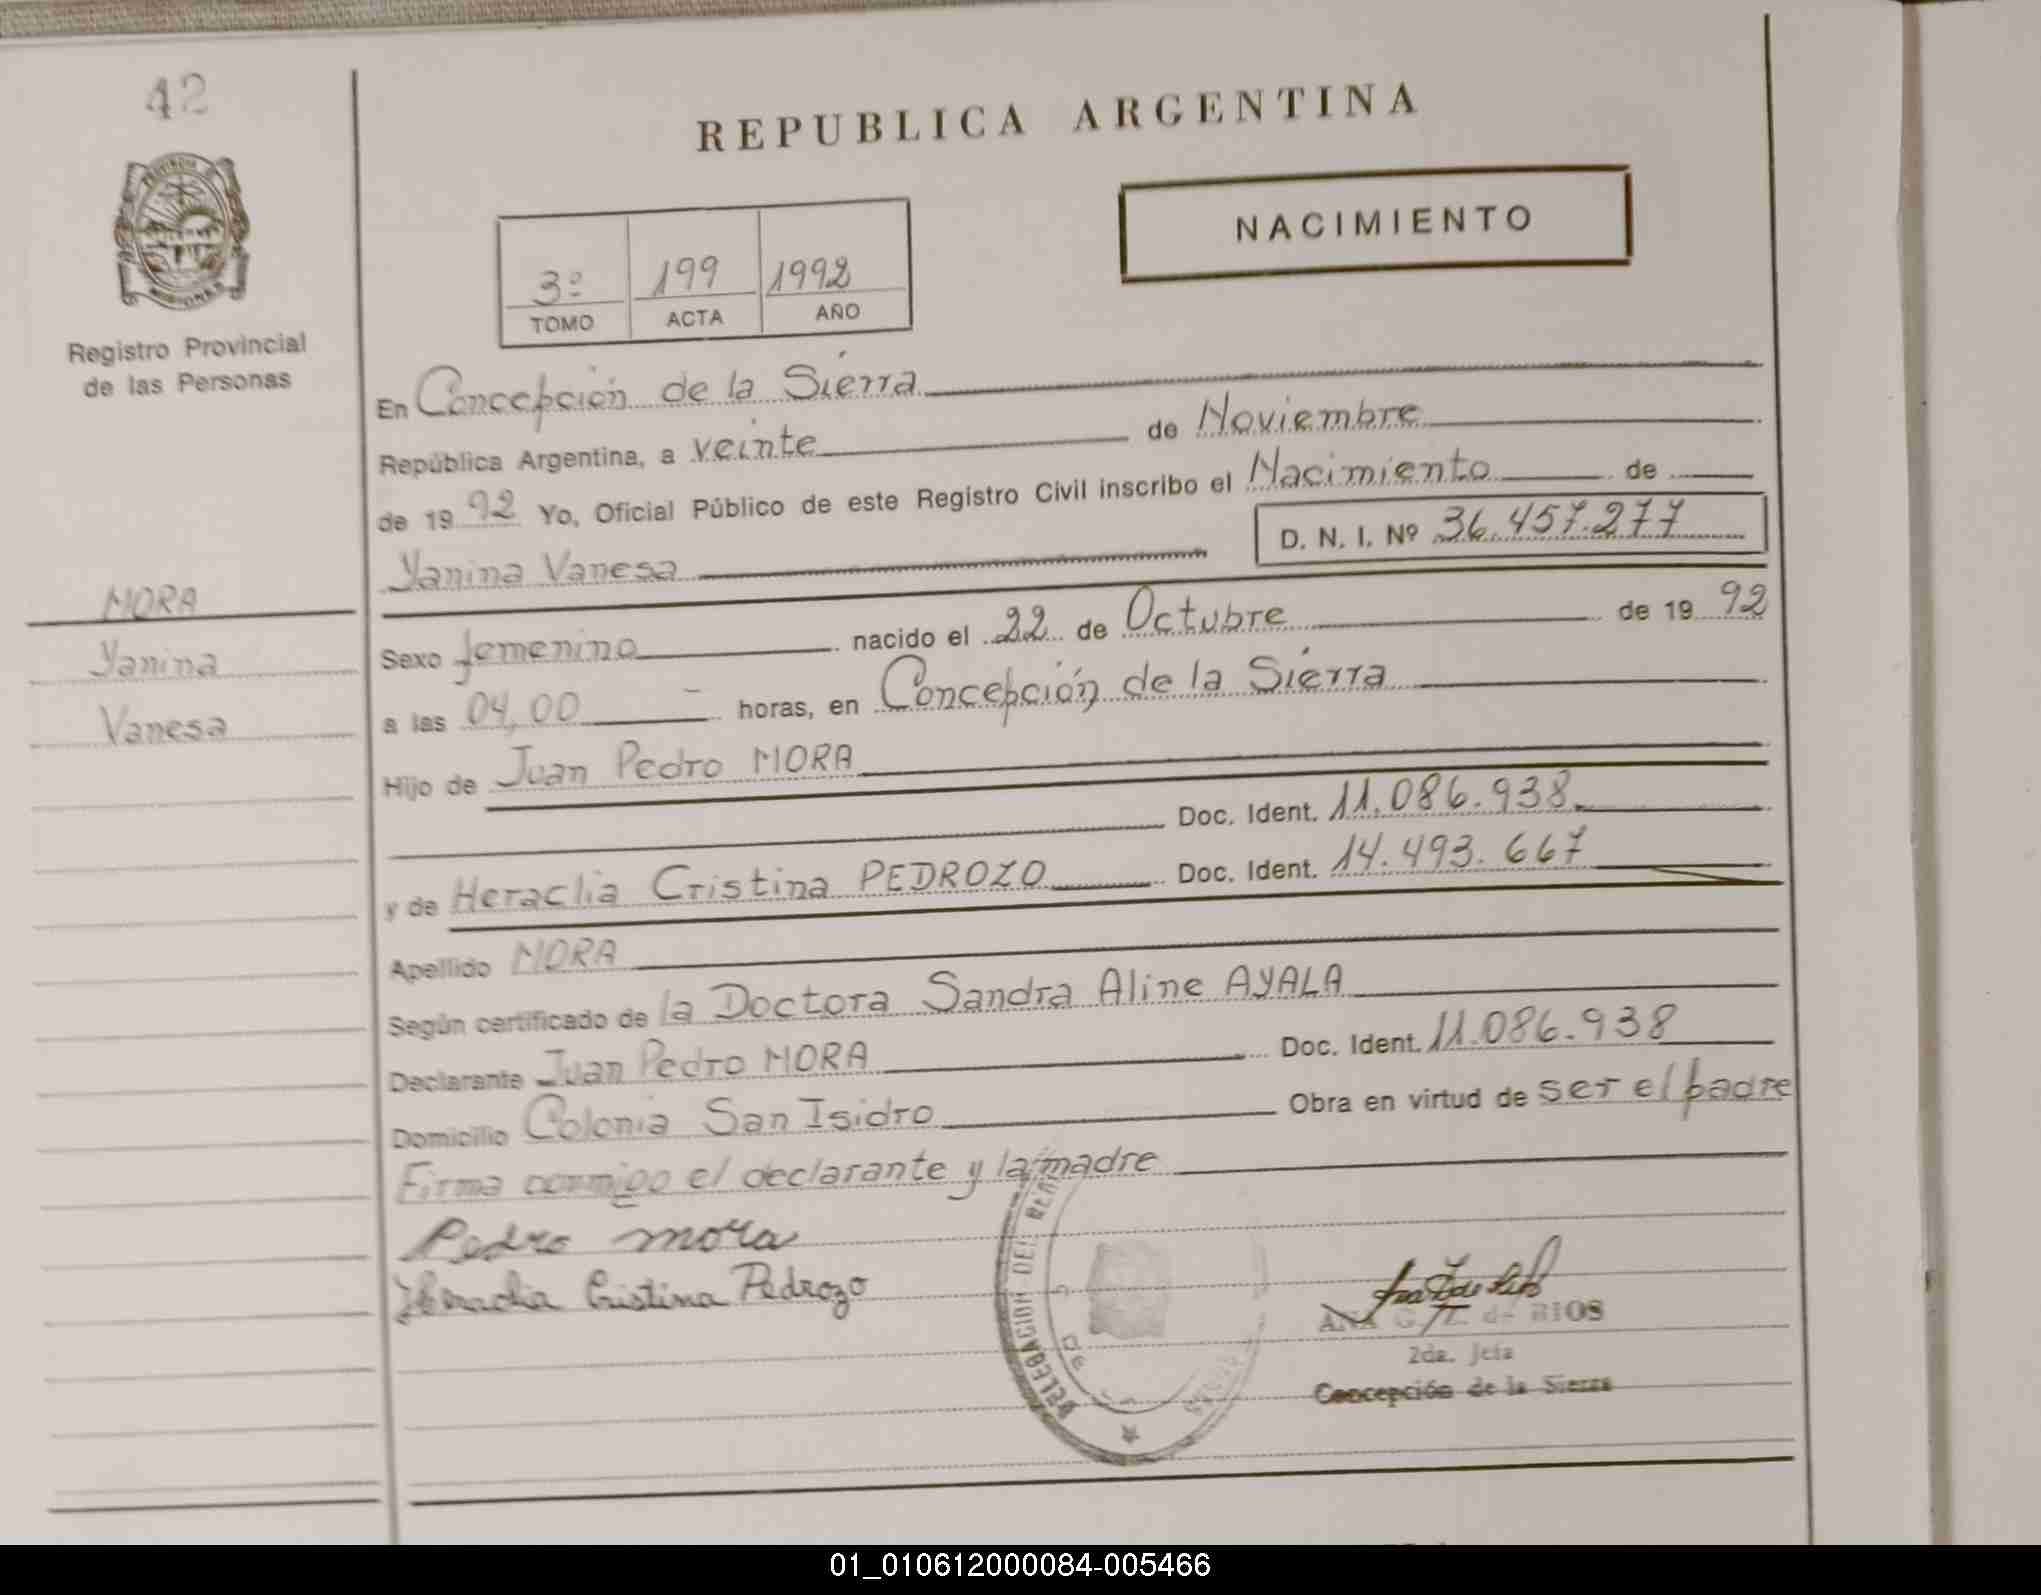 42
PROVINCIA
MISIONES
Registro Provincial
de las Personas
MORA
Yanina
Vanesa
REPUBLICA ARGENTINA
NACIMIENTO
3º 199 1992
TOMO ACTA AÑO
En Concepción de la Sierra
República Argentina, a veinte de Noviembre
de 1992 Yo, Oficial Público de este Registro Civil inscribo el Nacimiento de
Yanina Vanesa D. N. I. Nº 36.457.277
Sexo femenino nacido el 22 de Octubre de 1992
a las 04,00 horas, en Concepción de la Sierra
Hijo de Juan Pedro MORA
Doc. Ident. 11.086.938
y de Heraclia Cristina PEDROZO Doc. Ident. 14.493.667
Apellido MORA
Según certificado de la Doctora Sandra Aline AYALA
Declarante Juan Pedro MORA Doc. Ident. 11.086.938
Domicilio Colonia San Isidro Obra en virtud de ser el padre
Firma conmigo el declarante y la madre
Pedro mora
Heraclia Cristina Pedrozo
DELEGACION DEL
DE
ANA G. de RIOS
2da. Jefa
Concepción de la Sierra
01_010612000084-005466